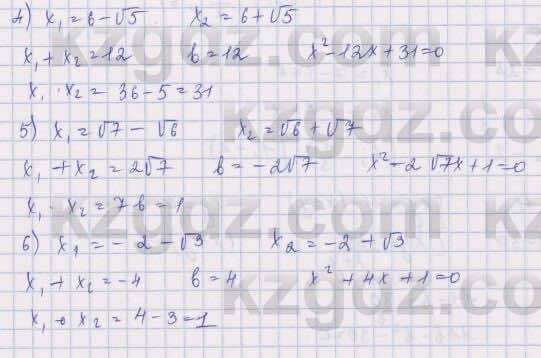 4) x₁ = 6 - √5    x₂ = 6 + √5
x₁ + x₂ = 12    b = 12    x² - 12x + 31 = 0
x₁ · x₂ = 36 - 5 = 31
5) x₁ = √7 - √6    x₂ = √6 + √7
x₁ + x₂ = 2√7    b = -2√7    x² - 2√7x + 1 = 0
x₁ · x₂ = 7 6 = 1
6) x₁ = -2 - √3    x₂ = -2 + √3
x₁ + x₂ = -4    b = 4    x² + 4x + 1 = 0
x₁ · x₂ = 4 - 3 = 1
kzgdz.com
kzgdz.com
kzgdz.com